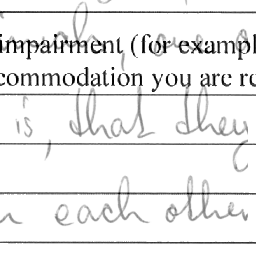 impairment (for exampl
commodation you are re
is, that they
each other